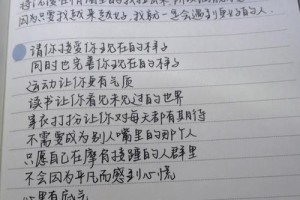 因为只要我越来越好,我就一定会遇到更好的人.
请你接受你现在的样子
同时也完善你现在的样子
运动让你更有气质
读书让你看见未见过的世界
穿衣打扮让你对每天都有期待
不需要成为别人嘴里的那个人
只愿自己在摩肩接踵的人群里
不会因为平凡而感到心慌
心里有底气